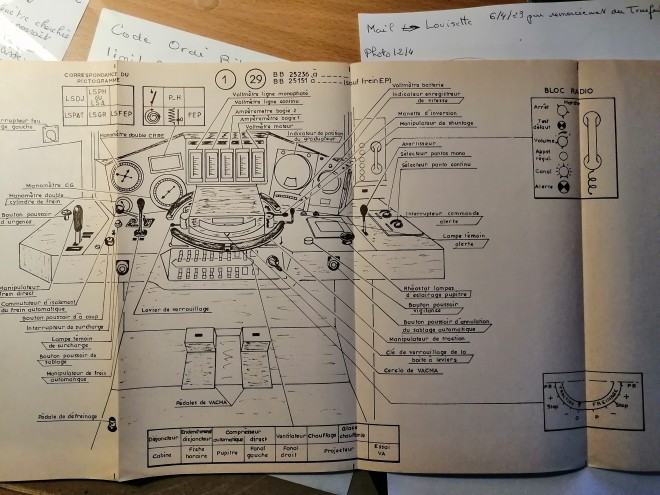 Code Ordi
Mail Louisette 6/4/23
Photo 1.2/4
CORRESPONDANCE DU
PICTOGRAMME
LSDJ
LSPH
OU
LSA
LSPAT
LSGR
LSFEP
P.H
FEP
1
29
BB 25236 à
BB 25151 à
(sauf frein EP)
Voltmètre ligne monophasé
Voltmètre ligne continu
Ampèremètre bogie 2
Ampèremètre bogie 1
Voltmètre moteur
Indicateur de position
du graduateur
Manomètre double CPBE
ge gauche
Manomètre CG
Manomètre double
cylindre de frein
Bouton poussoir
d'urgence
Manipulateur
frein direct
Commutateur d'isolement
du frein automatique
Bouton poussoir d'à coup
Interrupteur de surcharge
Lampe témoin
de surcharge
Bouton poussoir de
sablage
Manipulateur de frein
automatique
Pédale de défreinage
Levier de verrouillage
Pédales de VACMA
Voltmètre batterie
Indicateur enregistreur
de vitesse
Manette d'inversion
Manipulateur de shuntage
Avertisseur
Sélecteur panto mono
Sélecteur panto continu
Interrupteur commande
alerte
Lampe témoin
alerte
Rhéostat lampes
d'éclairage pupitre
Bouton poussoir
vigilance
Bouton poussoir d'annulation
du sablage automatique
Manipulateur de traction
Clé de verrouillage de la
boîte à leviers
Cercle de VACMA
BLOC RADIO
Arrêt
Marche
Test
défaut
Volume
Appel
régul.
Canal
Alerte
PR
PR
+
+
Stop
Stop
TRACTION
FREINAGE
Disjoncteur
Enclenchement
disjoncteur
Compresseur
automatique
direct
Ventilateur
Chauffage
Glace
chauffante
Cabine
Fiche
horaire
Pupitre
Fanal
gauche
Fanal
droit
Projecteur
Essai
VA